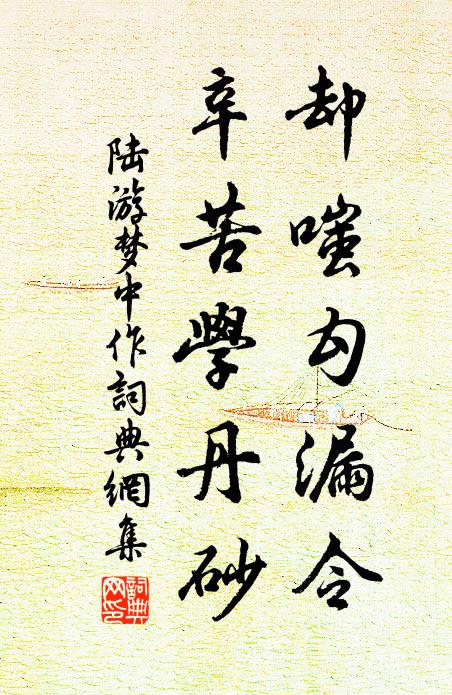 却嗤勾漏令
辛苦學丹砂
陆游梦中作詞典網集
詞典